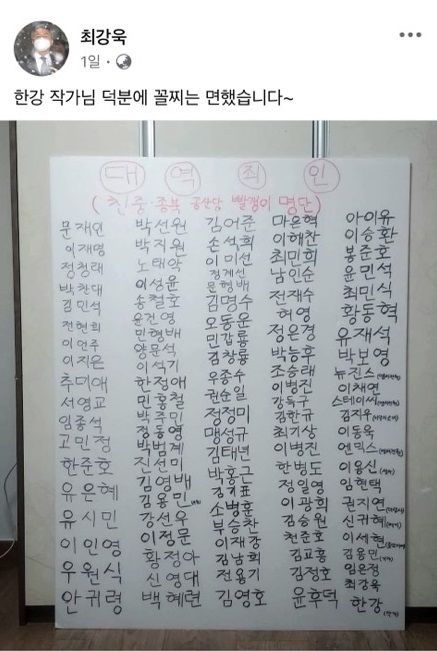 최강욱
1일 ·
한강 작가님 덕분에 꼴찌는 면했습니다~
대 역 죄 인
(친중 종북 공산당 빨갱이 명단)
문재인
이재명
정청래
박찬대
김민석
전현희
이언주
이지은
추미애
서영교
임종석
고민정
한준호
유은혜
유시민
이인영
우원식
안귀령
박선원
박지원
노태악
이성윤
송철호
윤건영
민형배
양문석
이석기
한정애
민홍철
박주민
정동영
박범계
진선미
김영배
김용민
강선우
이정문
황정아
신영대
백혜련
김어준
손석희
이미선
정계선
문형배
김명수
오동운
민갑룡
김창룡
우종수
권순일
정정미
맹성규
김태년
박홍근
김기표
소병훈
부승찬
이재강
김남희
전용기
김영호
마은혁
이해찬
최민희
남인순
전재수
허영
정은경
박능후
조승래
이병진
강득구
김한규
최기상
이병진
한병도
정일영
이광희
김승원
천준호
김교흥
김정호
윤후덕
아이유
이승환
봉준호
윤민석
최민식
황동혁
유재석
박보영
뉴진스
이채연
스테이씨
김지우
이동욱
엔믹스
이용신
임현택
권지연
신규혜
이세현
김용민
임은정
최강욱
한강 (작가)